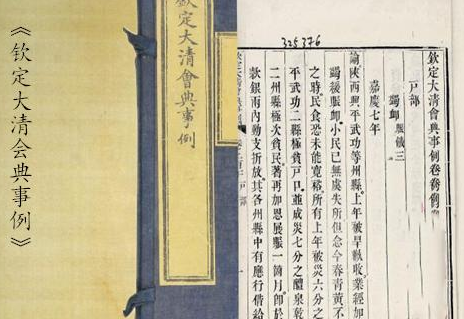 《钦定大清会典事例》
欽定大清會典事例
325376
欽定大清會典事例卷
戶部
蠲卹 賑饑三
嘉慶七年
諭陝西興平武功等州縣上年被旱歉收業經加
蠲緩賑卹小民已無虞失所但念今春青黃不
之時民食恐未能寬裕所有上年被災六分之
平武功二縣極貧戶口並成災七分之醴泉乾
二州縣極次貧民著再加恩展賑一箇月即於
款銀兩內動支折放其各州縣中有應行借給